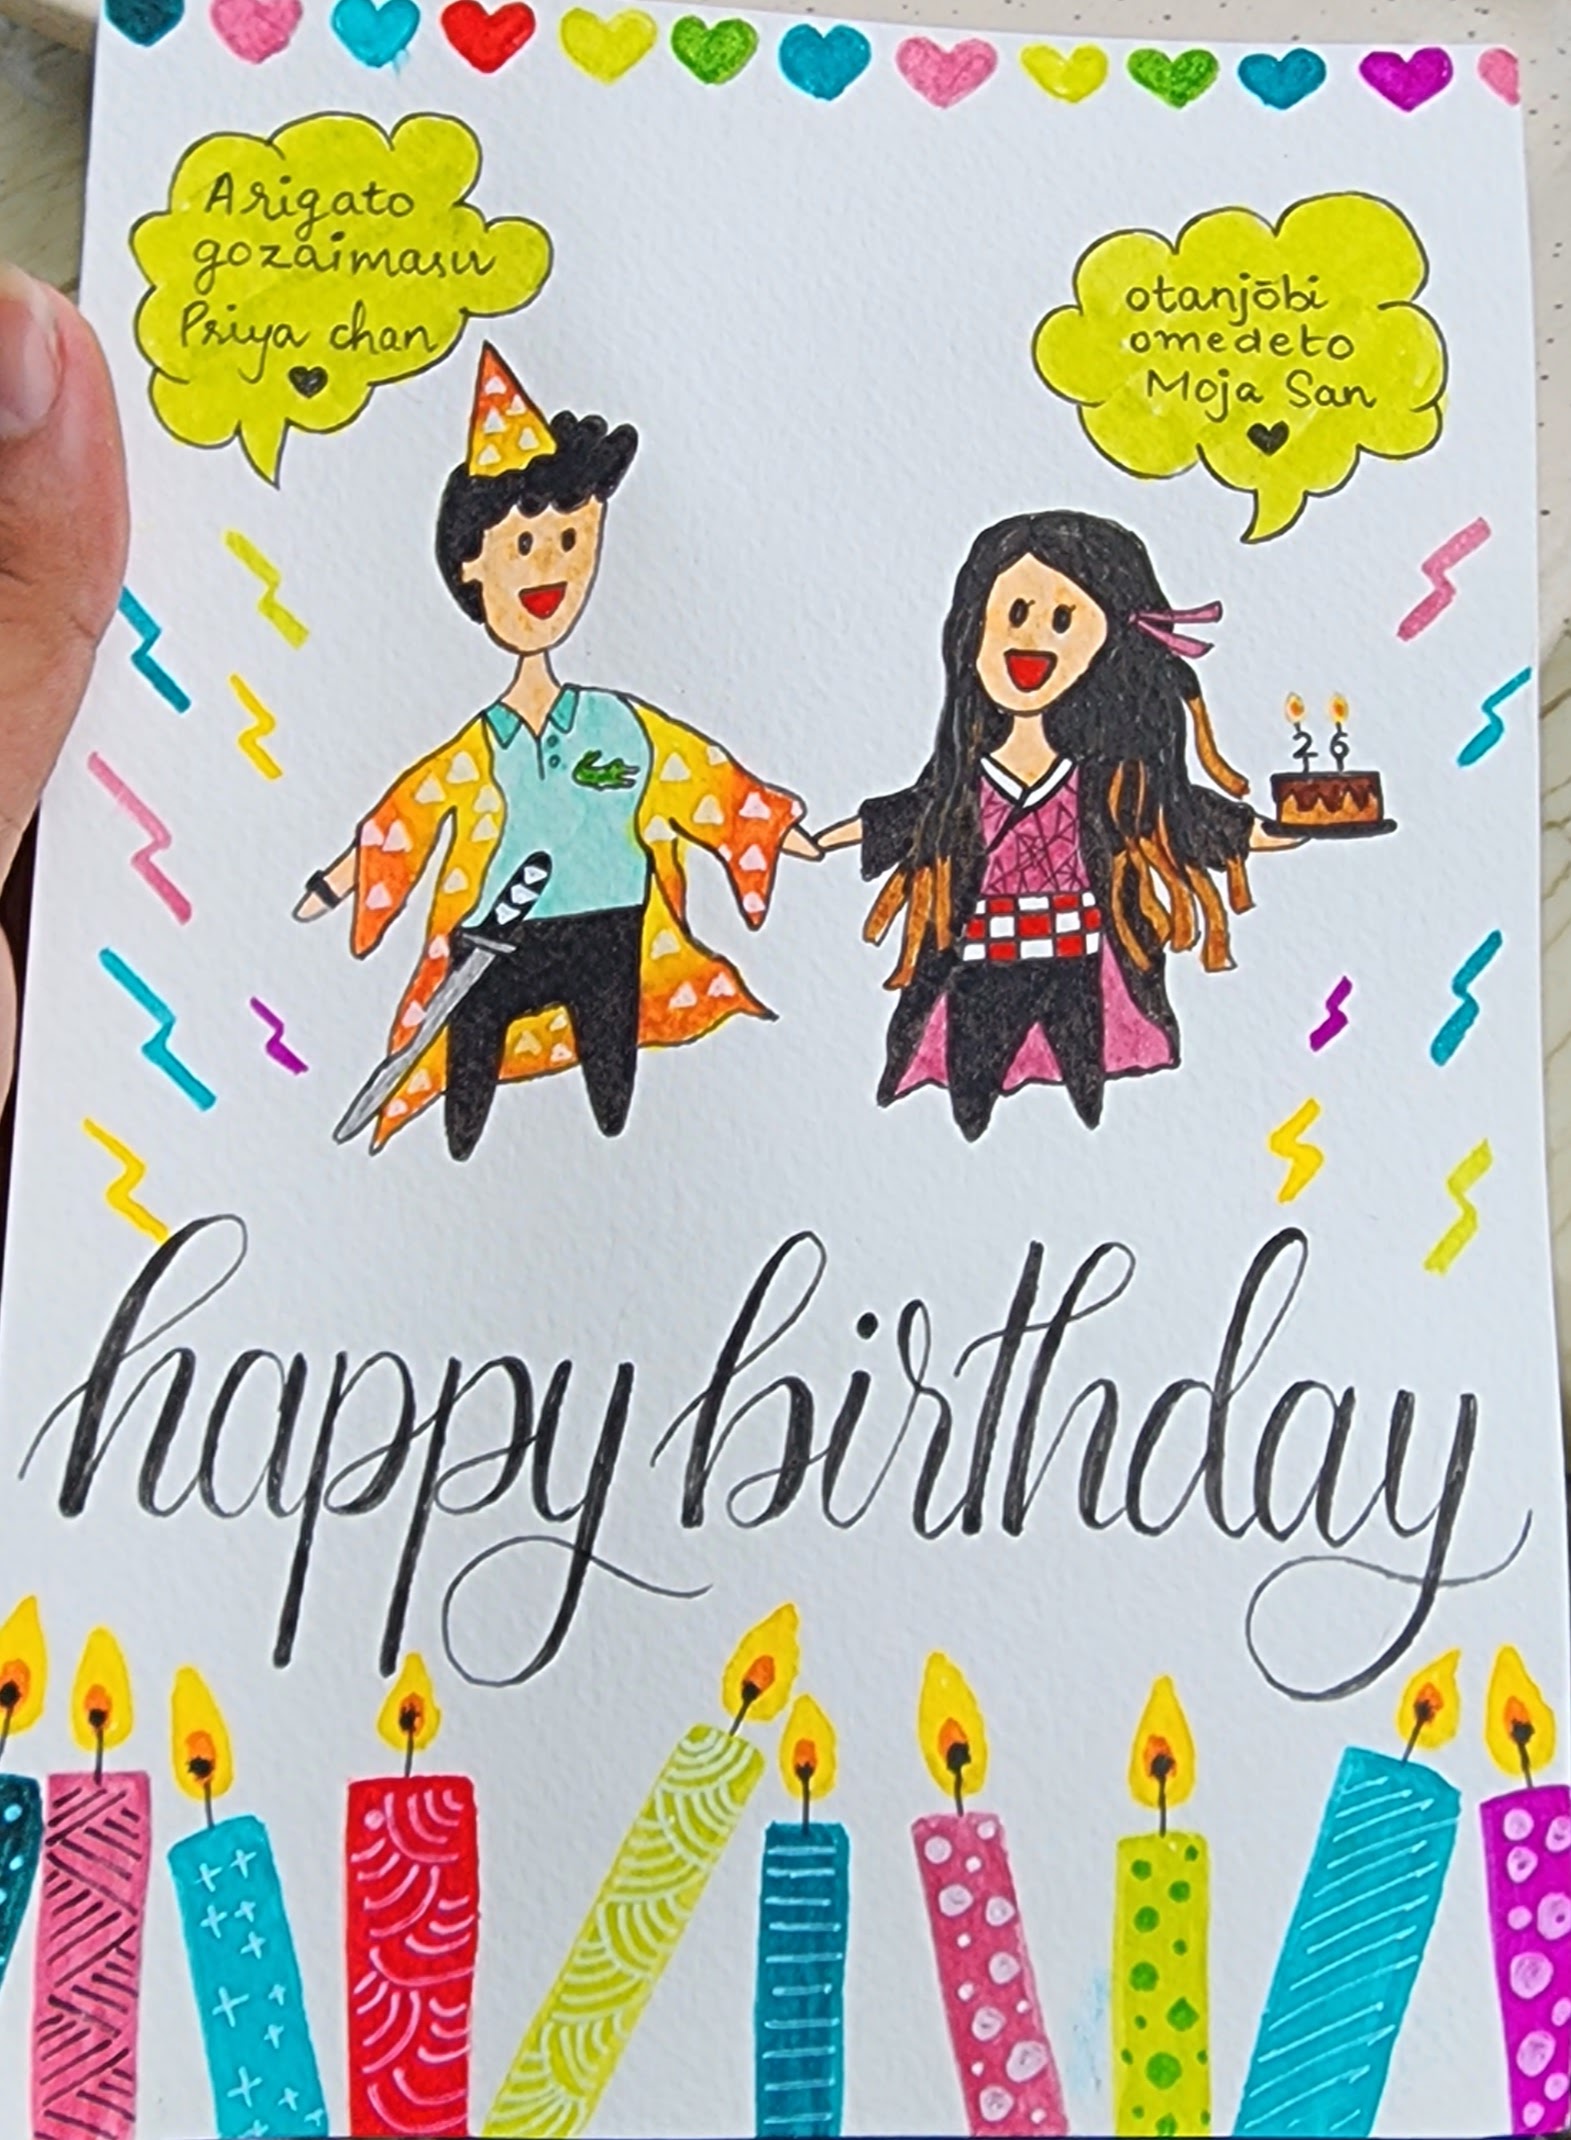 Arigato
gozaimasu
Priya chan
otanjōbi
omedeto
Moja San
26
happy birthday